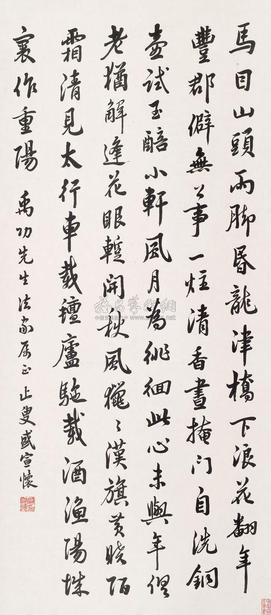 馬目山頭雨脚昏龍津橋下浪花翻年
豐郡僻無公事一炷清香晝掩門自洗銅
壺試玉醅小軒風月為徘徊此心未與年俱
老猶解逢花眼暫開秋風獵獵漢旗黄曉陌
霜清見太行車載氊廬駝載酒漁陽城
裏作重陽
禹功先生法家屬正 止叟盛宣懷